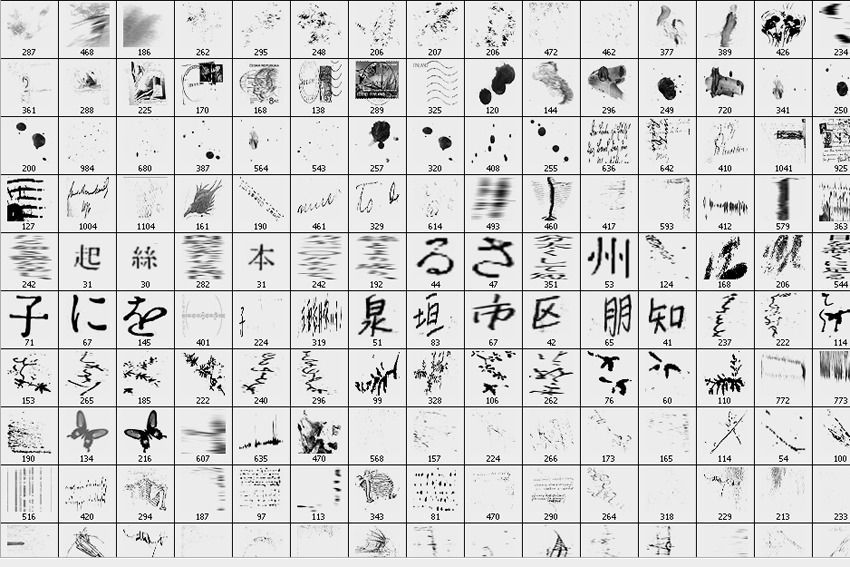 287 468 186 262 295 248 206 207 206 472 462 377 389 426 234
361 288 225 170 168 138 289 325 120 144 296 249 720 341 250
200 984 680 387 564 543 257 320 408 255 636 642 410 1041 925
127 1004 1104 161 190 461 329 614 493 460 417 593 412 579 363
起 絲 本 る さ 州
242 31 30 282 31 242 192 44 47 351 53 124 168 206 544
子 に を 泉 垣 市 区 朋 知
71 67 145 401 224 319 51 83 67 42 65 41 237 222 114
153 265 185 222 240 296 99 328 106 262 76 60 110 772 773
190 134 216 607 635 470 568 157 224 266 173 165 114 54 100
516 420 294 187 97 113 343 81 470 290 264 318 229 213 233